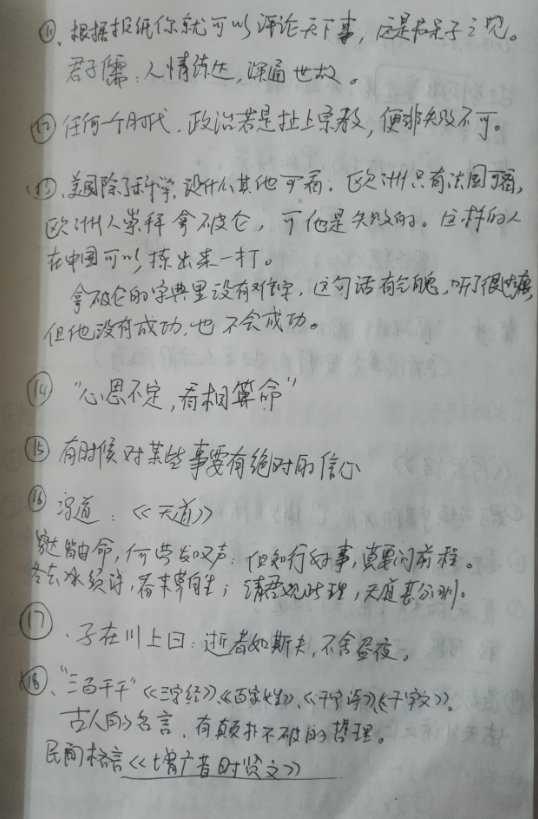 ⑪、根据报纸你就可以评论天下事，这是书呆子之见。
君子儒：人情练达，深通世故。
⑫ 任何一个时代，政治若是扯上宗教，便非失败不可。
⑬、美国除了科学，没什么其他可看，欧洲只有法国可看，
欧洲人崇拜拿破仑，可他是失败的。这样的人
在中国可以拣出来一打。
拿破仑的字典里没有难字，这句话有气魄，听了很过瘾，
但他没有成功，也不会成功。
⑭ “心思不定，看相算命”
⑮ 有时候对某些事要有绝对的信心
⑯ 冯道：《天道》
穷达皆由命，何劳发叹声；但知行好事，莫要问前程。
冬去冰须泮，春来草自生；请君观此理，天道甚分明。
⑰ 、子在川上曰：逝者如斯夫，不舍昼夜。
⑱、“三百千千”《三字经》、《百家姓》、《千字诗》、《千字文》。
古人的名言，有颠扑不破的哲理。
民间格言《增广昔时贤文》